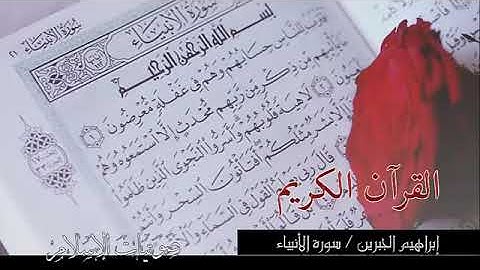 سورة الأنبياء
سورة الأنبياء
بسم الله الرحمن الرحيم
للناس حسابهم وهم في غفلة معرضون
من ذكر من ربهم محدث إلا استمعوه وهم
لاهية قلوبهم وأسروا النجوى الذين ظلموا
إلا بشر مثلكم أفتأتون السحر
قال ربي يعلم القول في السماء
القرآن الكريم
إبراهيم الجبرين / سورة الأنبياء
صوتيات الإسلام